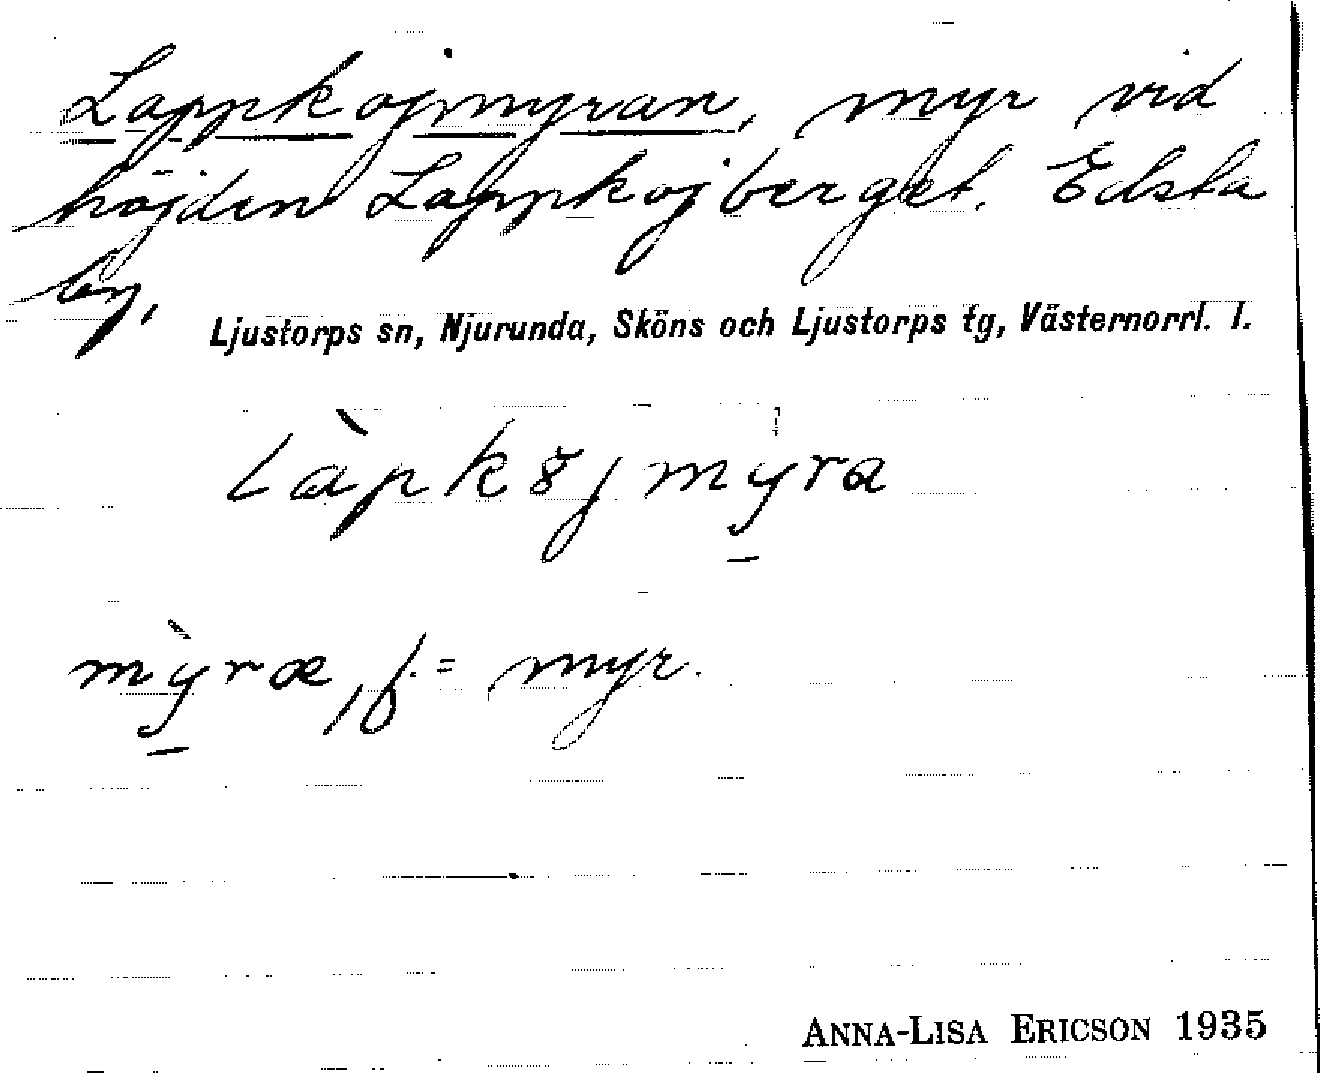 Lappkojmyran, myr vid
höjden Lappkojberget. Edsta
by,
Ljustorps sn, Njurunda, Sköns och Ljustorps tg, Västernorrl. l.
làpk8jmy̠ra
mỳ̠ræ, f. = myr.
ANNA-LISA ERICSON 1935